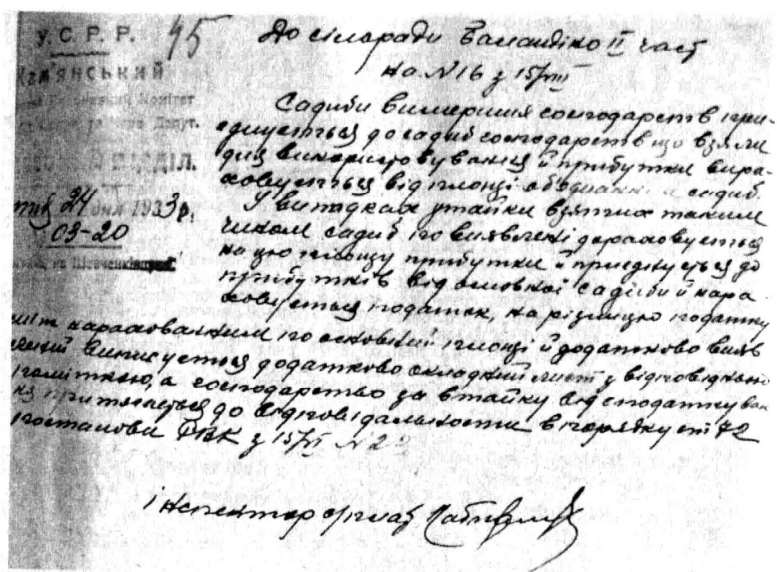 У. С. Р. Р.
45
До сільради Баландіно II част
на N16 з 15/VIII
Садиби вимерших господарств при-
єднується до садиб господарств що взяли
для використовування й прибутки вира-
ховується від площі об'єднання садиб.
У випадках утайки взятих таким
чином садиб по виявлені дораховується
на цю площу прибутки й приєднується до
прибутків від основної садиби й нара
ховується податок, на різницю податку
між нарахованим по основній площі й додатково вияв
леній виписується додатково окладний лист з відповідною
поміткою, а господарство за втайку від податкуван
ня притягається до відповідальности в порядку ст 42
постанови РВК з 15/VI N 2
ВІДДІЛ.
24 дня 1933 р.
03-20
інспектор